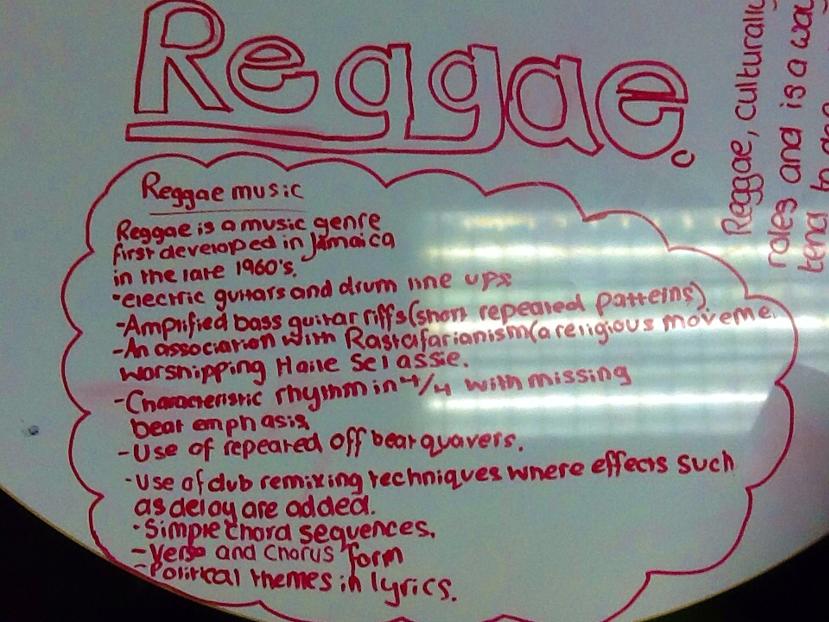 Reggae
Reggae music
Reggae is a music genre
first developed in Jamaica
in the late 1960's.
-electric guitars and drum line ups
-Amplified bass guitar riffs (short repeated patterns)
-An association with Rastafarianism (a religious moveme
worshipping Haile Selassie.
-Characteristic rhythm in 4/4 with missing
beat emphasis
-Use of repeated off beat quavers.
-Use of dub remixing techniques where effects such
as delay are added.
-Simple chord sequences.
-Verse and Chorus form
-Political themes in lyrics.
Reggae, culturally
roles and is a way
tend to